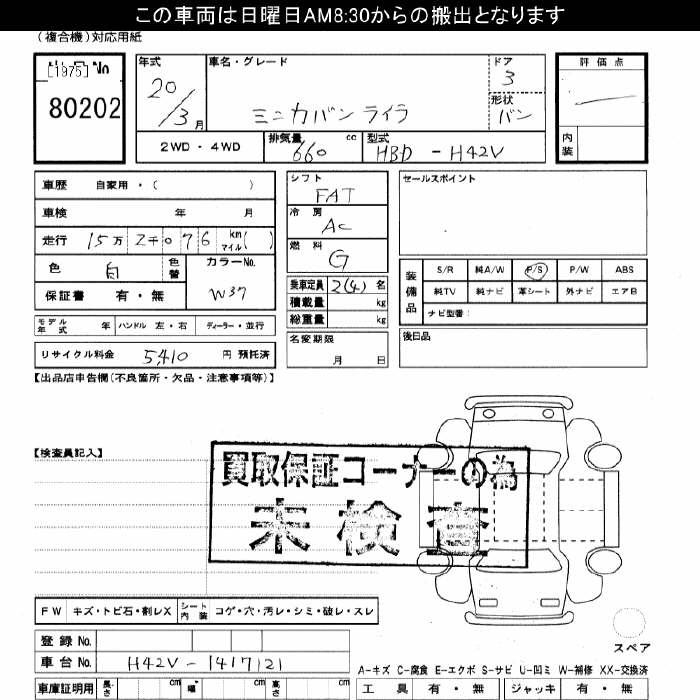 この車両は日曜日AM8:30からの搬出となります
(複合機)対応用紙
[1975] No
80202
年式
20/3月
車名・グレード
ミニカバン ライラ
ドア
3
形状
バン
評価点
内装
2WD・4WD
排気量 660 cc
型式 HBD - H42V
車歴 自家用・( )
車検 年 月
走行 15万 2千 0 7 6 km マイル ( )
色 白 色替
カラーNo. W37
保証書 有・無
シフト FAT
冷房 AC
燃料 G
乗車定員 2(4) 名
積載量 kg
総重量 kg
名変期限 月 日
セールスポイント
装備品
S/R 純A/W P/S P/W ABS
純TV 純ナビ 革シート 外ナビ エアB
ナビ型番:
後日品
モデル年式 年 ハンドル 左・右 ディーラー・並行
リサイクル料金 5,410 円 預託済
【出品店申告欄(不良箇所・欠品・注意事項等)】
【検査員記入】
買取保証コーナーの為
未検査
FW キズ・トビ石・割レX シート内装 コゲ・穴・汚レ・シミ・破レ・スレ
登録No.
車台No. H42V-1417121
車庫証明用 長さ cm 幅 cm 高さ cm
スペア
A-キズ C-腐食 E-エクボ S-サビ U-凹ミ W-補修 XX-交換済
工具 有・無 ジャッキ 有・無